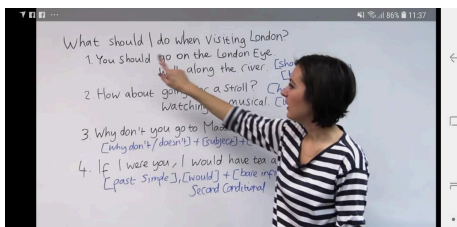 86% 11:37
What should I do when visiting London?
1. You should go on the London Eye.
along the river. [sho
2. How about going for a stroll? [h
Watching musical.
3. Why don't you go to Mad
[why don't/doesn't] + [subject] +
4. If I were you, I would have tea a
[past simple], [would] + [bare inf
Second Conditional